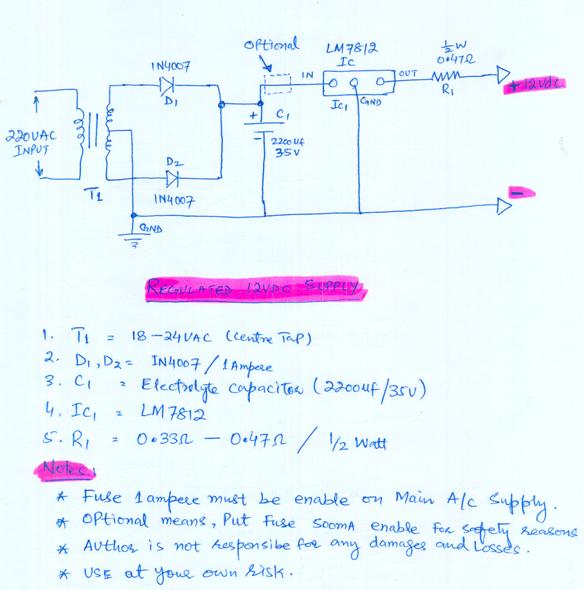 Optional
LM7812
IC
½W
0.47Ω
1N4007
D1
IN
OUT
R1
IC1
GND
+12vdc
+
C1
-
2200uf
35V
220VAC
INPUT
T1
D2
1N4007
GND
-
REGULATED 12VDC SUPPLY
1. T1 = 18-24VAC (Centre Tap)
2. D1, D2 = IN4007 / 1 Ampere
3. C1 = Electrolyte capacitor (2200uf/35V)
4. IC1 = LM7812
5. R1 = 0.33Ω - 0.47Ω / 1/2 Watt
Note:
* Fuse 1 ampere must be enable on Main A/c Supply.
* Optional means, Put Fuse 500mA enable for safety reasons
* Author is not responsibe for any damages and Losses.
* USE at your own risk.